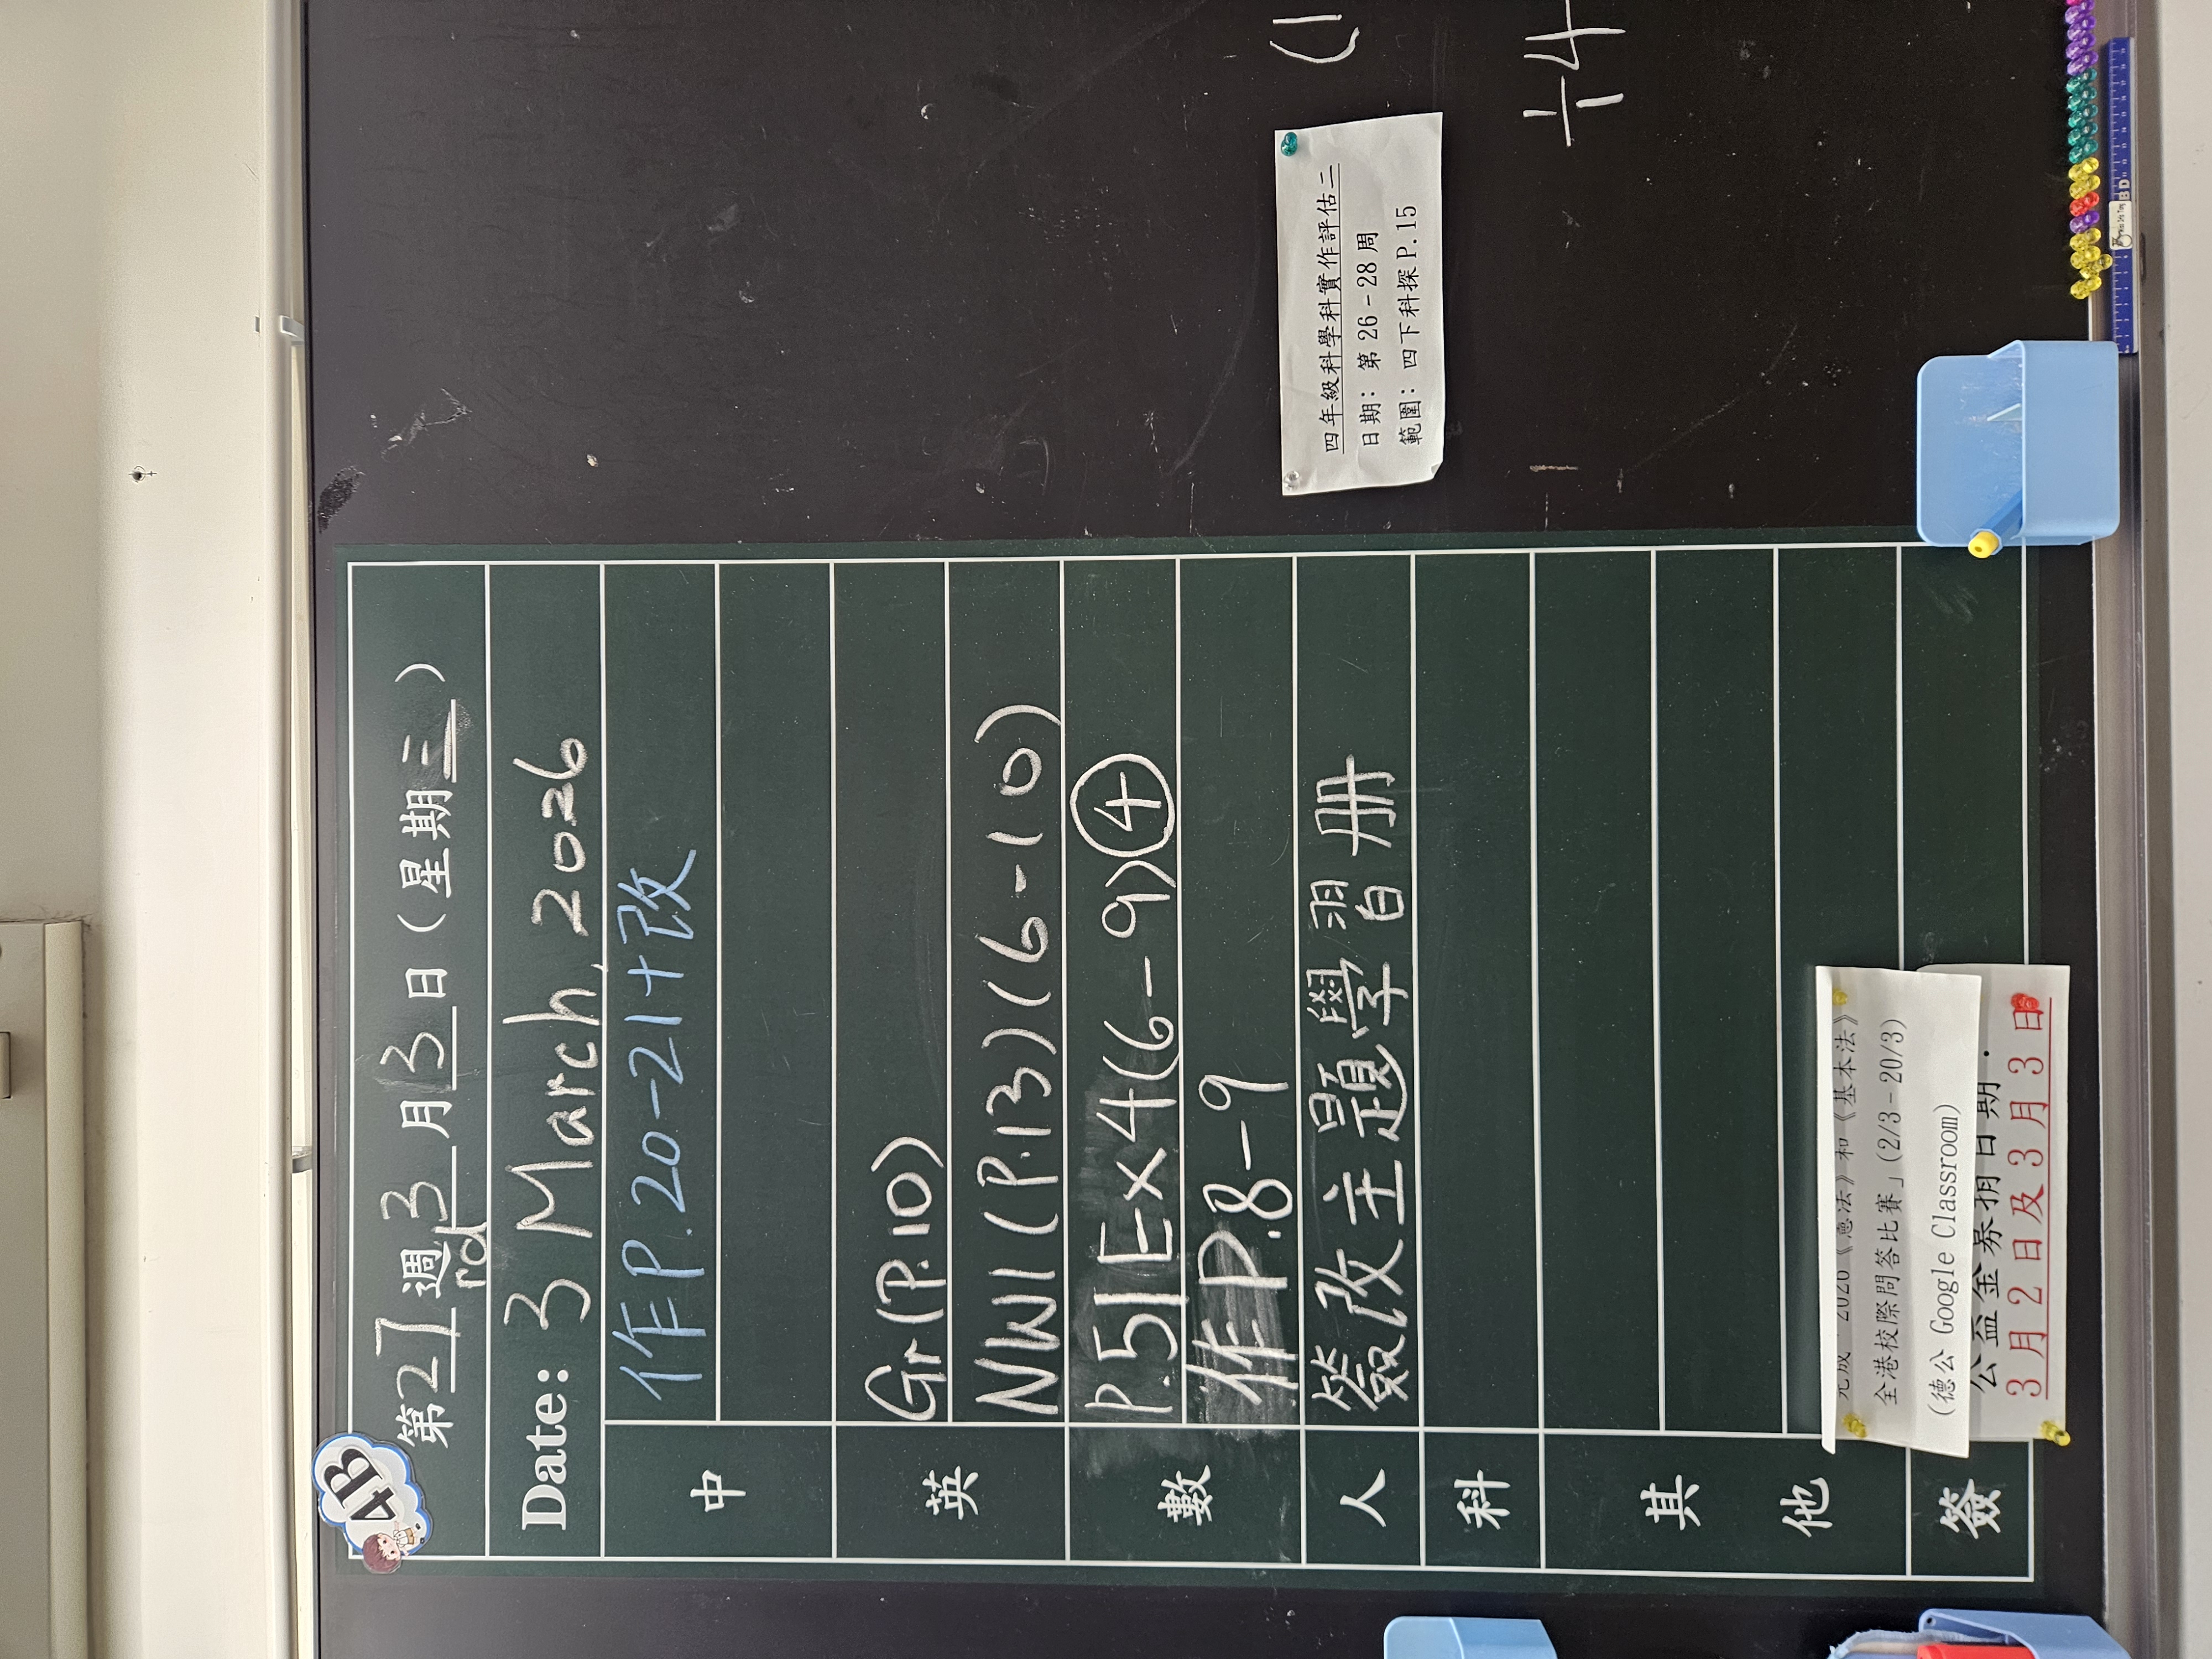 4B
第27週3月3日(星期三)
Date: 3rd March, 2026
中
作P.20-21+改
英
Gr(P.10)
NW1(P.13)(6-10)
數
P.51Ex4(6-9)④
作P.8-9
人
簽改主題學習冊
科
其他
簽
2026《憲法》和《基本法》
全港校際問答比賽」(2/3-20/3)
(德公 Google Classroom)
公益金券捐日期:
3月2日及3月3日
四年級科學科實作評估二
日期: 第26-28周
範圍: 四下科探P.15